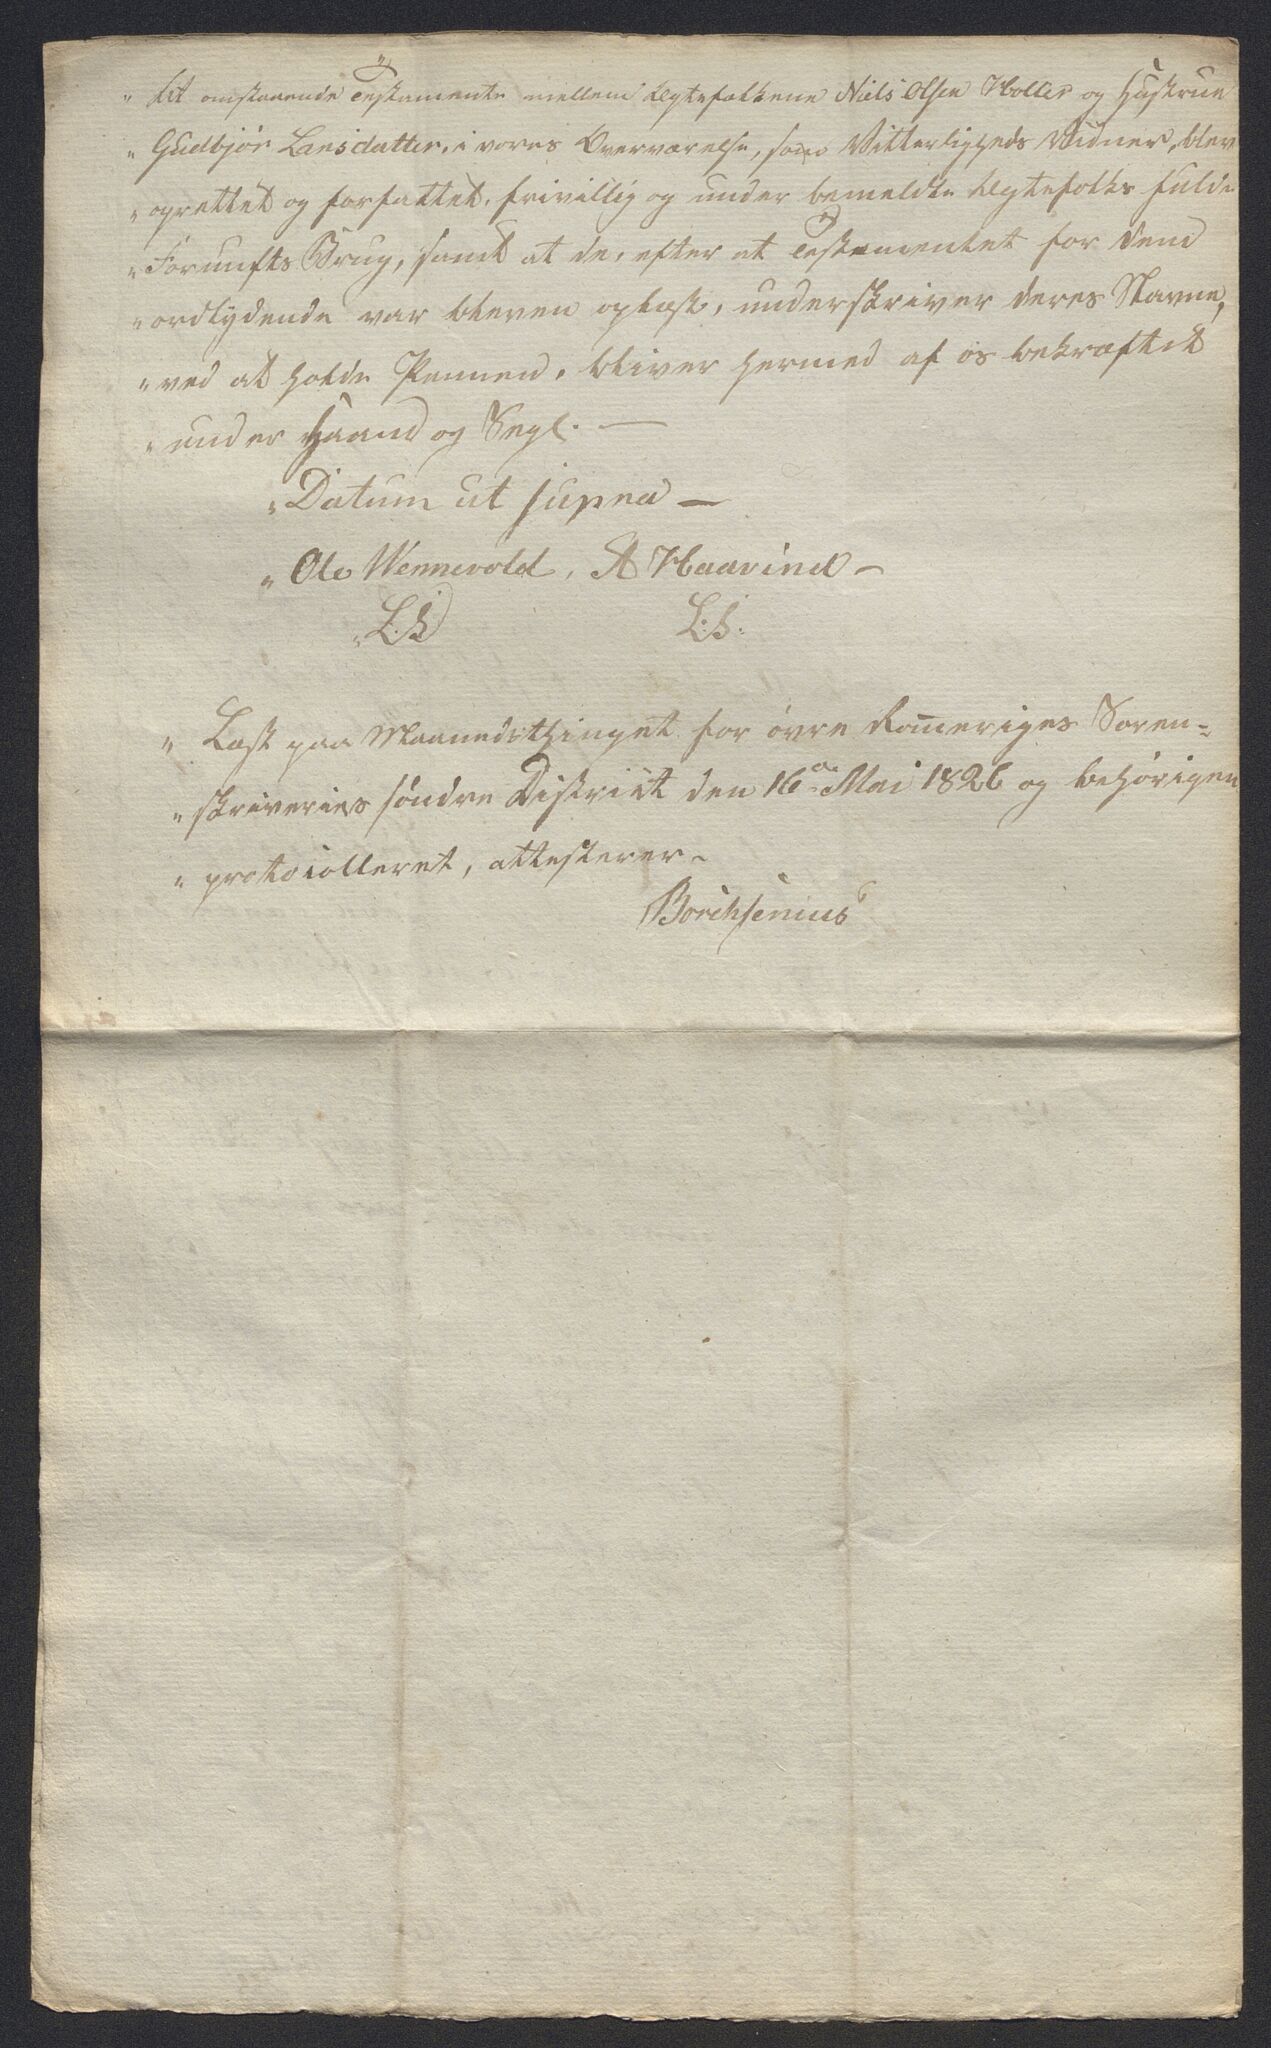 " At omskrevende Testamente mellem Ægtefolkene Niels Olsen Holter og Hustrue
" Gudbjør Larsdatter, i vores Overværelse, som Vitterligheds Vidner, blev
" oprettet og forfattet, frivillig og under bemeldte Ægtefolks fulde
" Fornufts Brug, samt at de, efter at Testamentet for dem
" ordlydende var bleven oplæst, underskriver deres Navne,
" ved at holde Pennen, bliver hermed af os bekræftet
" under Haand og Segl. —
" Datum ut supra —
" Ole Wennevold, A Haarind —
" L:S: L:S:
" Læst paa Maanedsthinget for øvre Romeriges Soren=
" skriveries søndre District den 16de Mai 1826 og behørigen
" protocolleret, attesterer -
Borchsenius